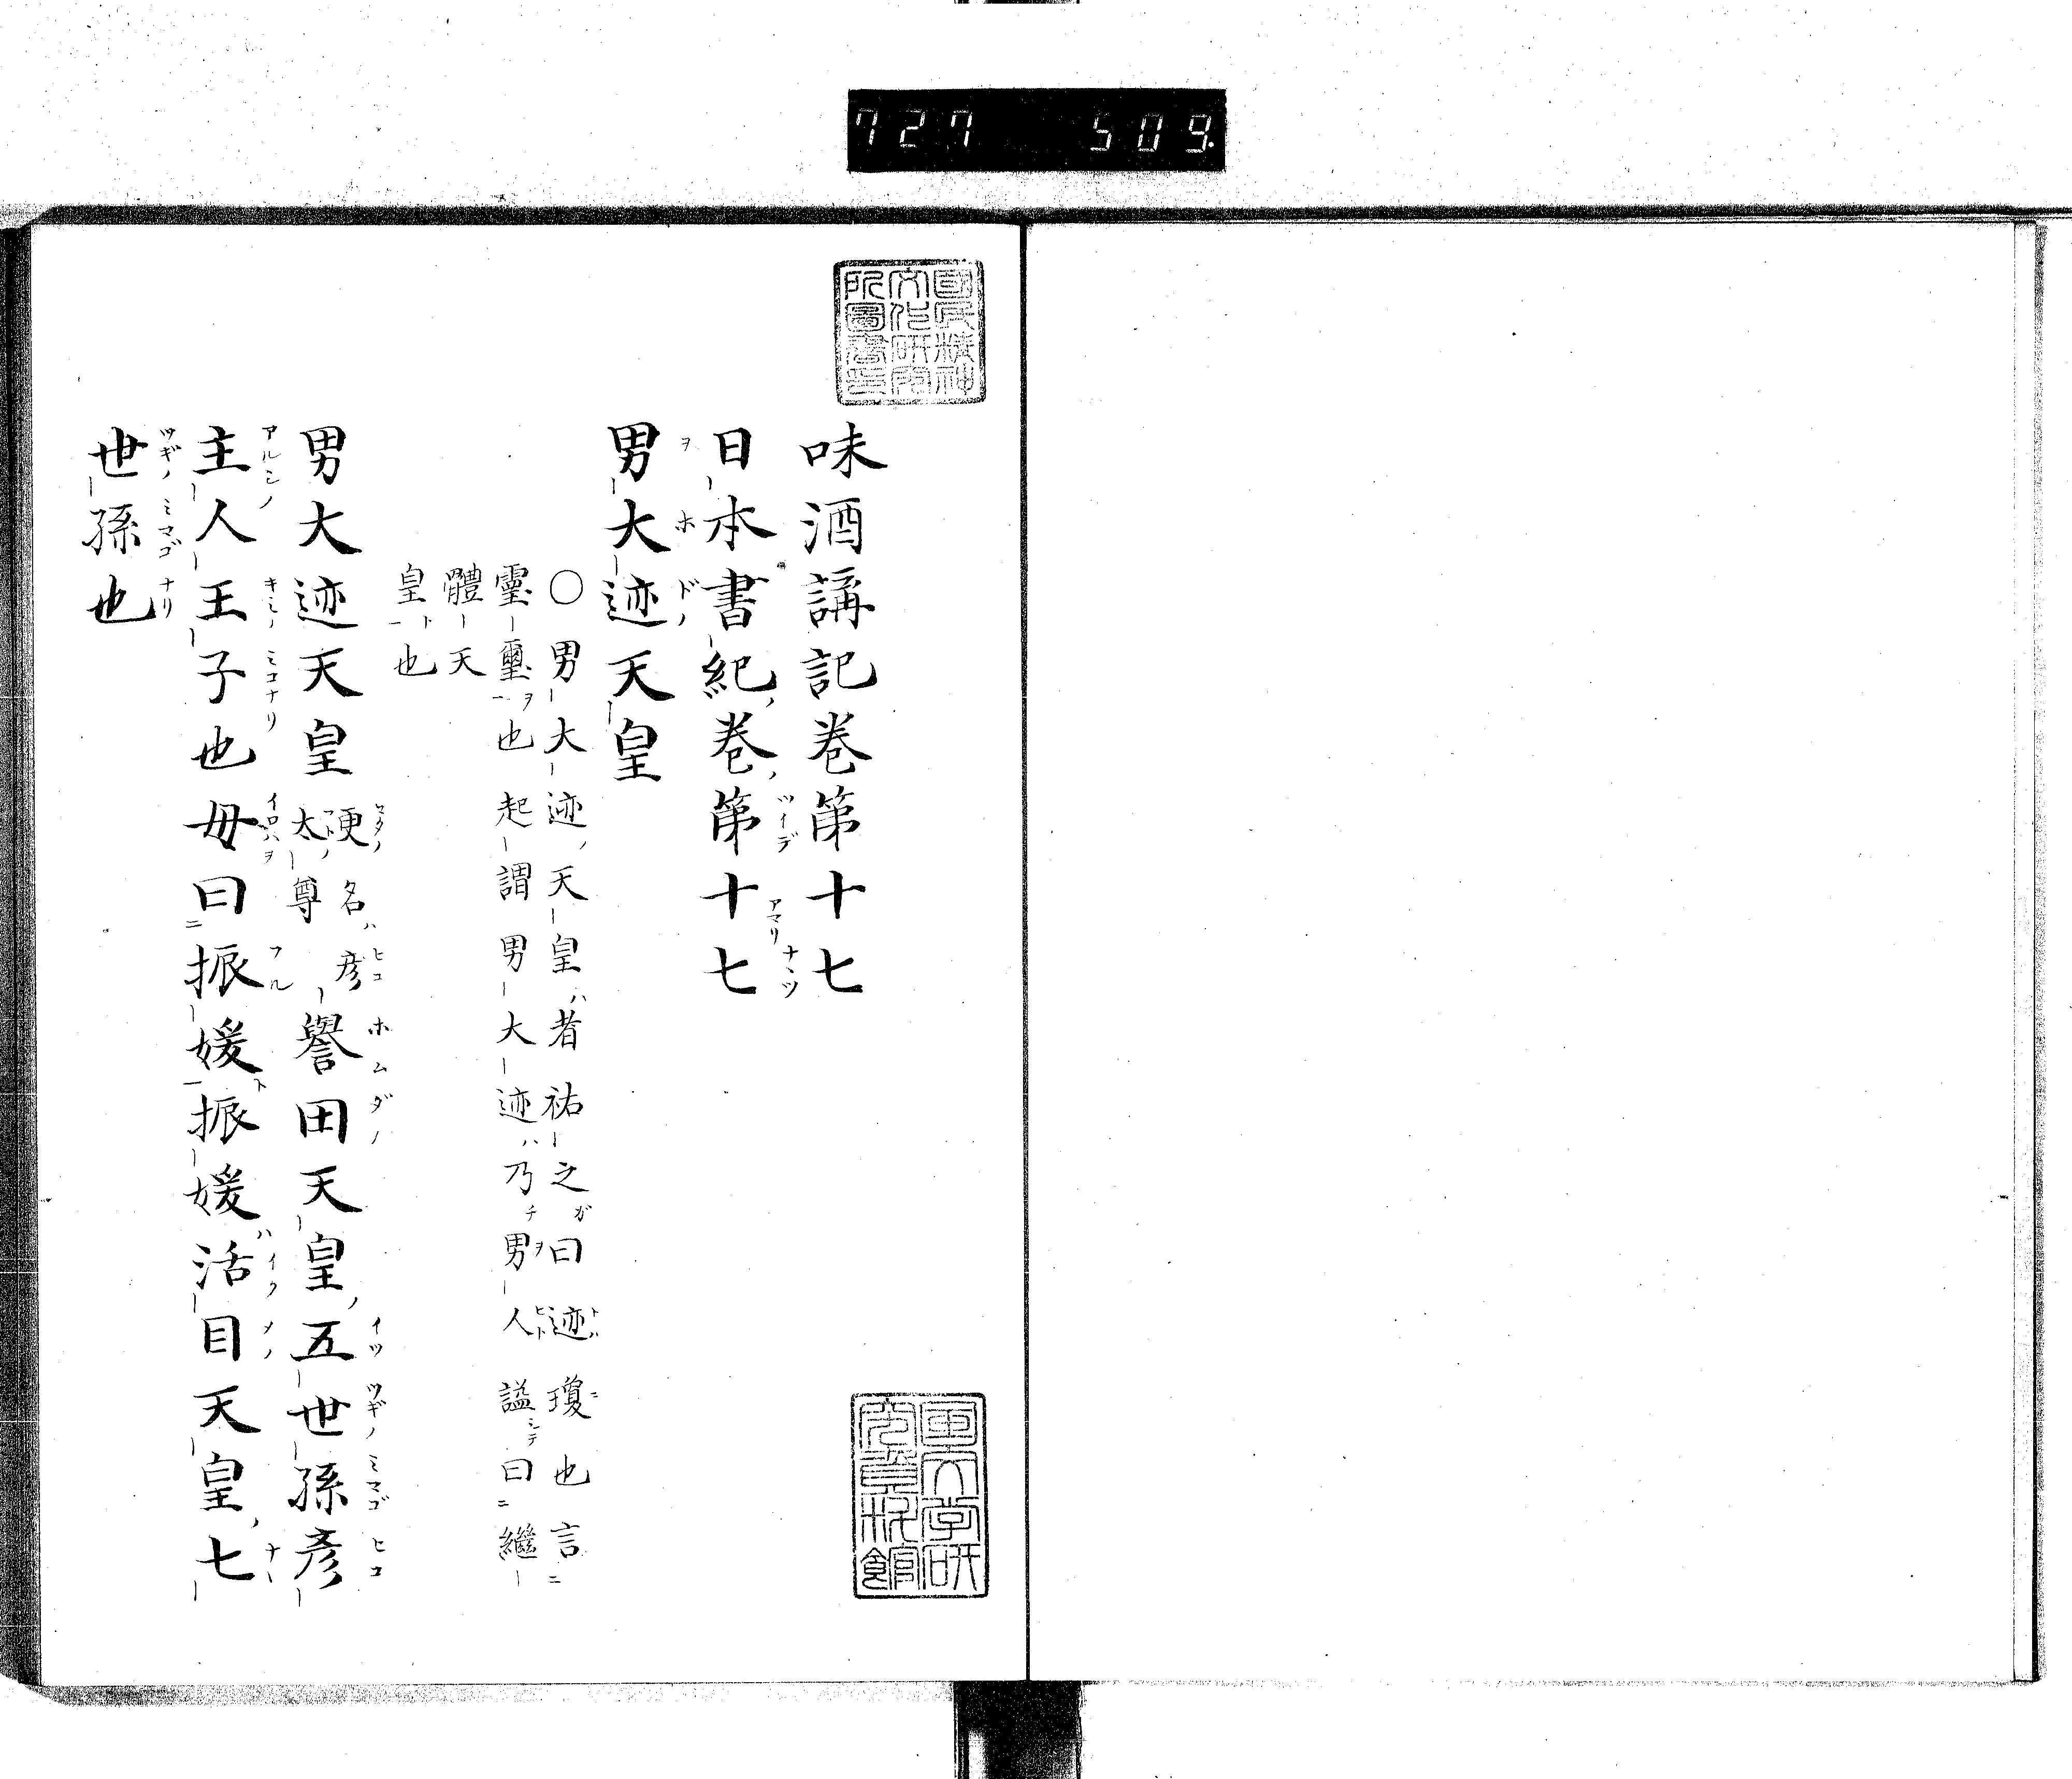 727 509.
國民精神
文化研究
所圖書印
国文学研
究資料館
味酒講記卷第十七
日本書紀卷第十七
男大迹天皇
〇男大迹天皇者祐之曰迹瓊也言
靈璽也起謂男大迹乃男人謚曰繼
體天
皇也
男大迹天皇更名彦太尊譽田天皇五世孫彥
主人王子也母曰振媛振媛活目天皇七
世孫也